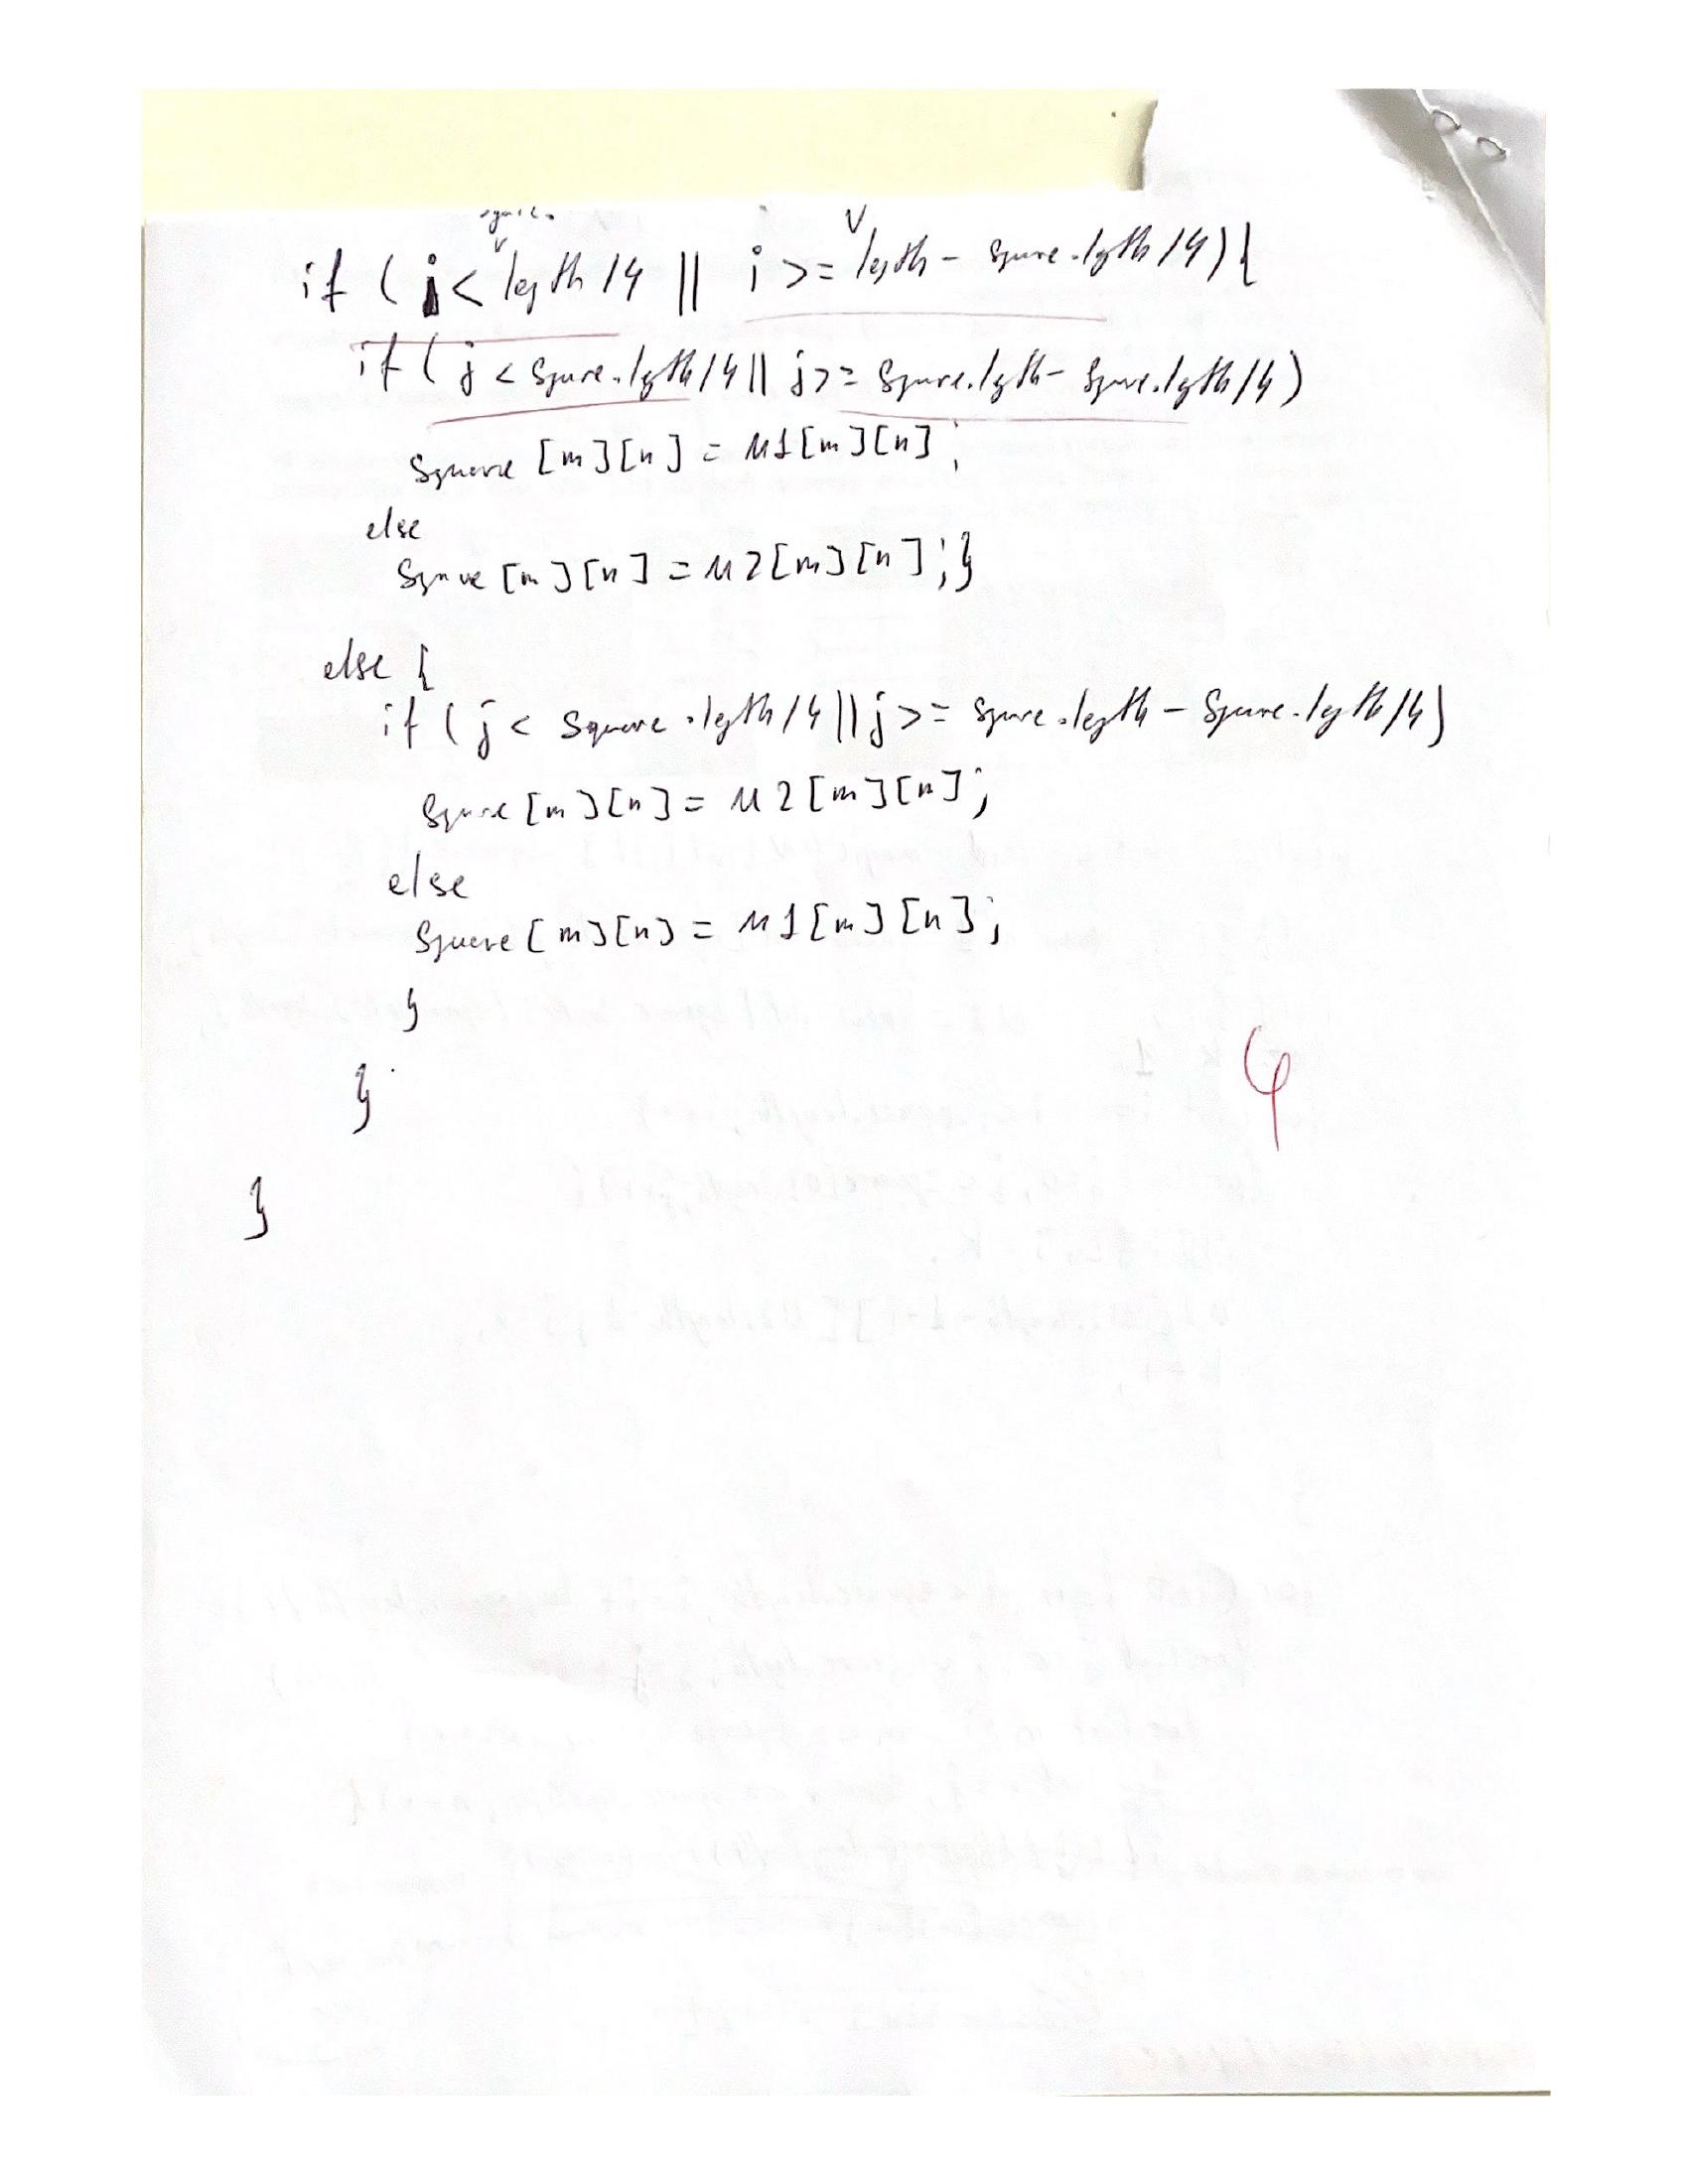 square.
if ( i < length/4 || i >= length - square.length/4) {
if ( j < square.length/4 || j >= square.length - square.length/4)
square [m][n] = M1[m][n];
else
square [m][n] = M2[m][n];}
else {
if ( j < square.length/4 || j >= square.length - square.length/4)
square [m][n] = M2[m][n];
else
square [m][n] = M1[m][n];
}
}
}
4